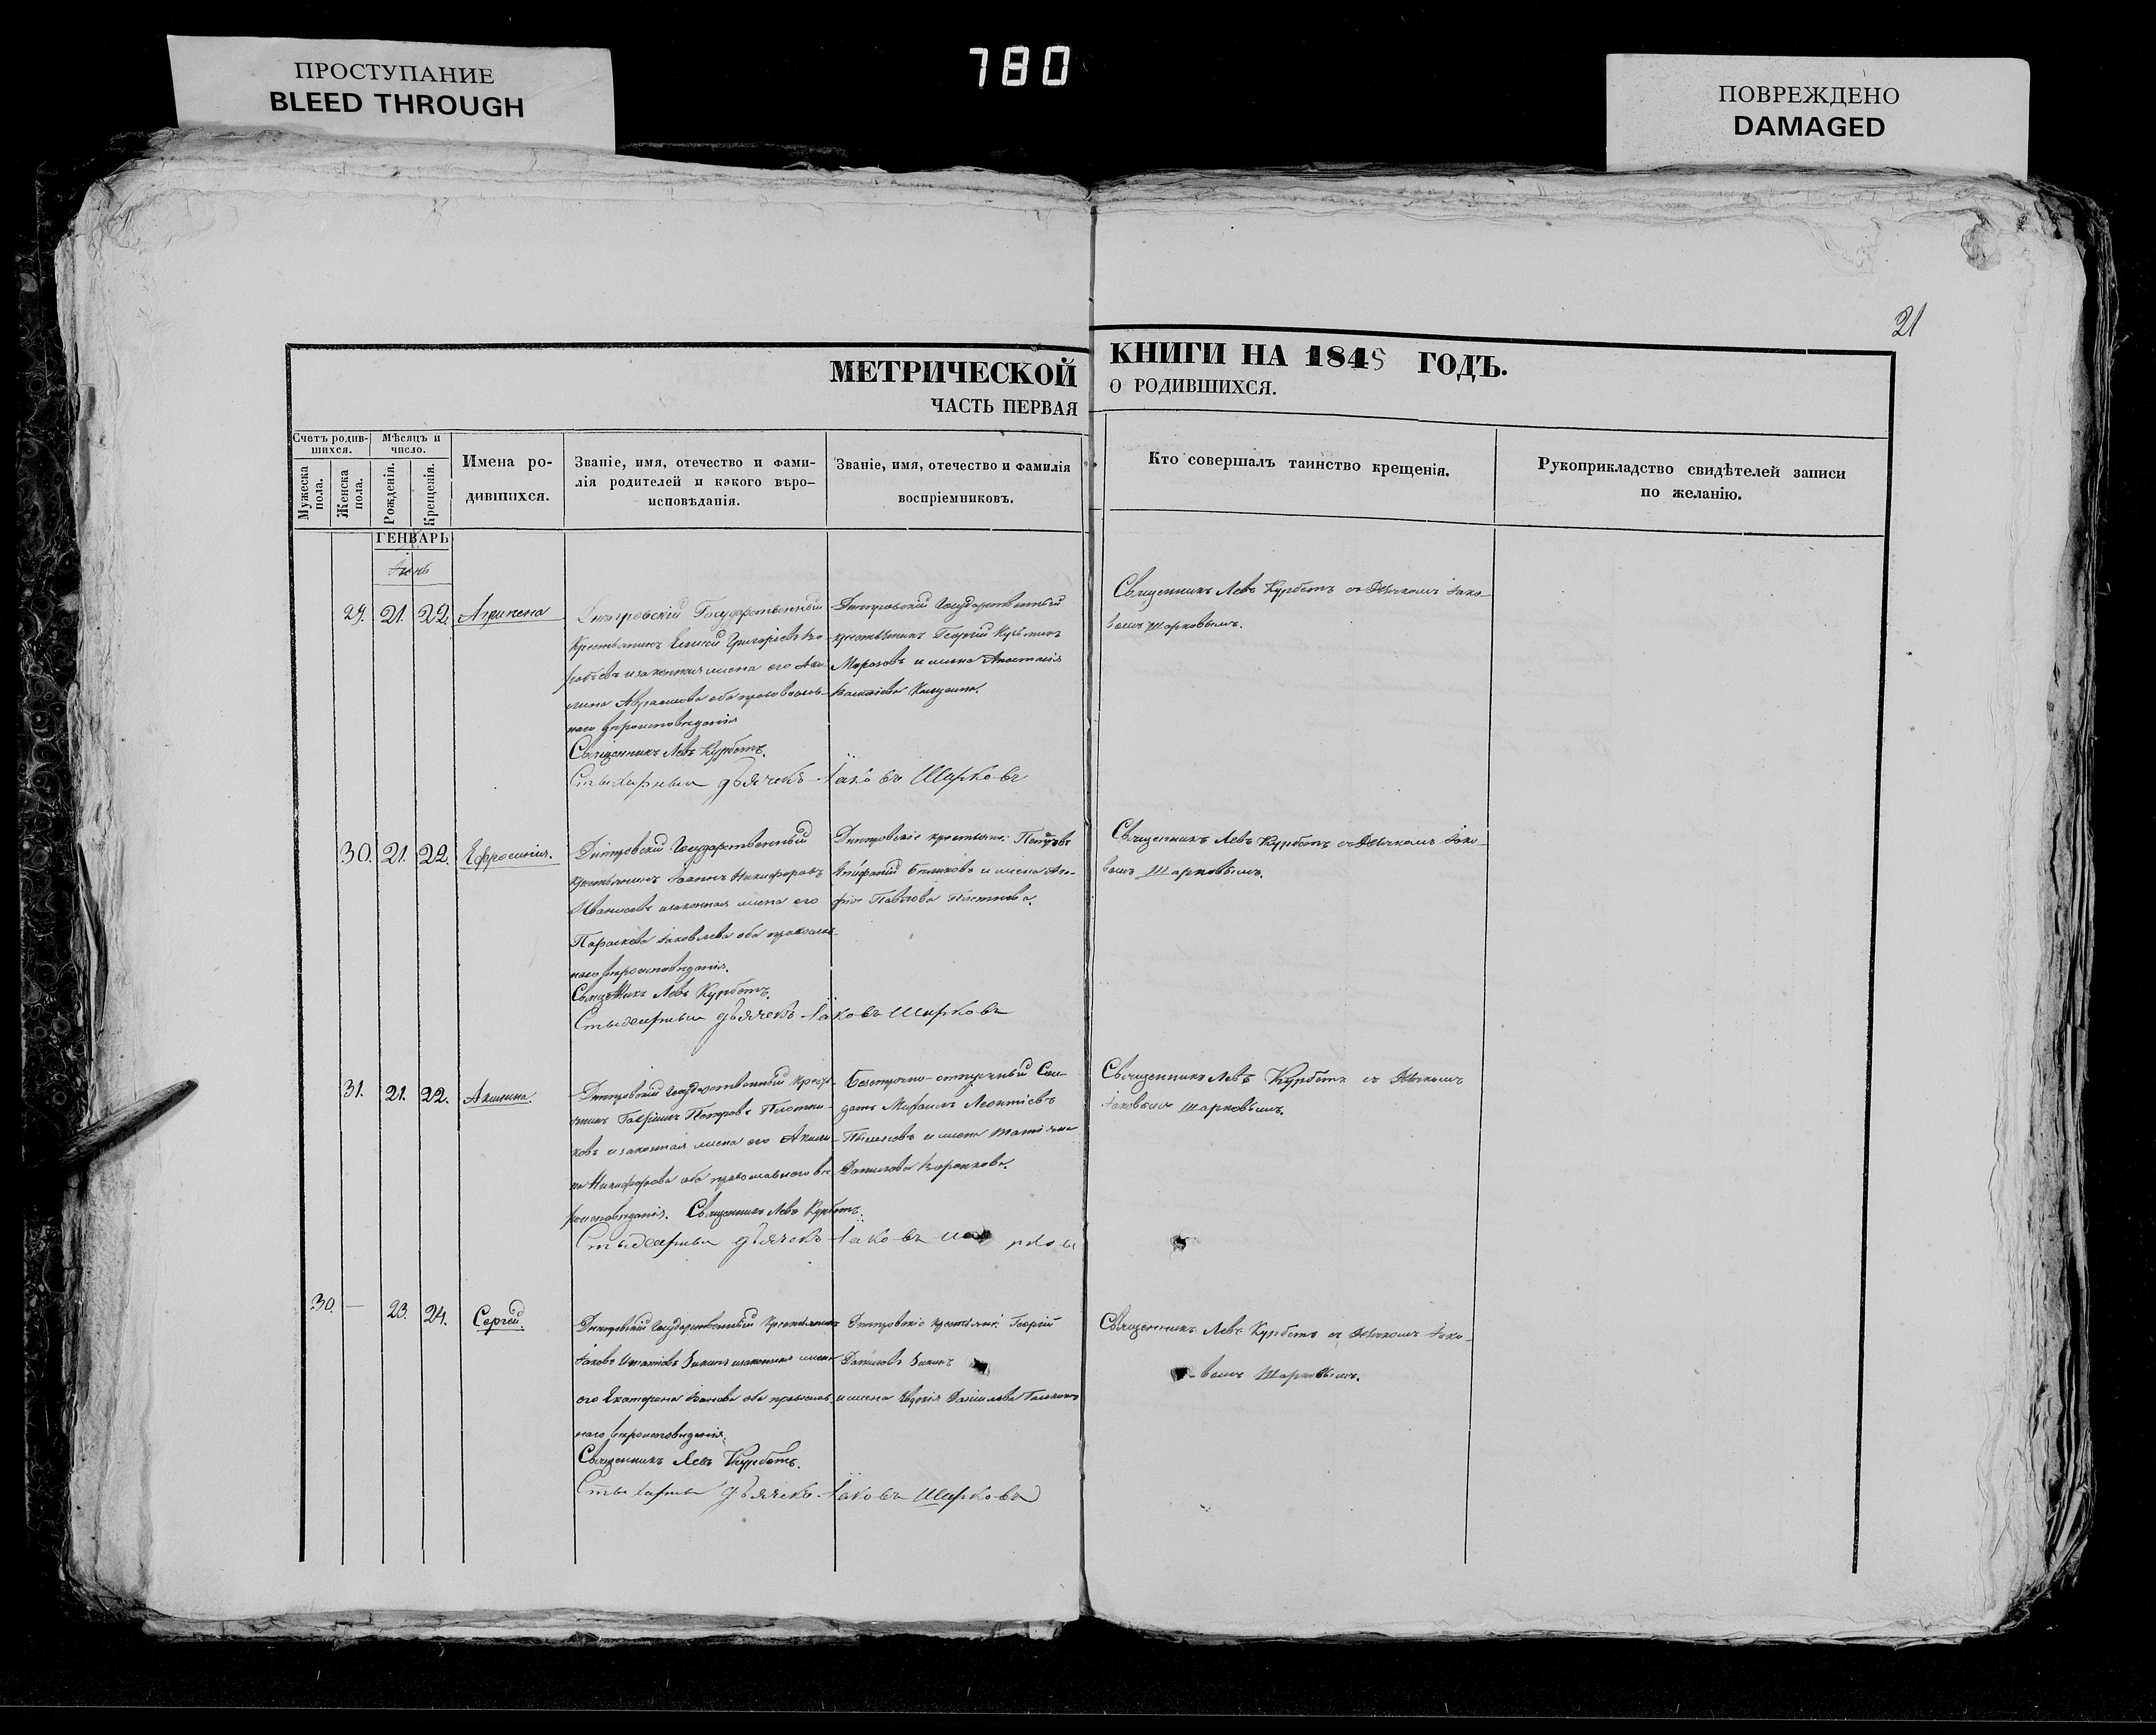 ПРОСТУПАНИЕ
BLEED THROUGH
780
ПОВРЕЖДЕНО
DAMAGED
21
МЕТРИЧЕСКОЙ КНИГИ НА 1845 ГОДЪ.
ЧАСТЬ ПЕРВАЯ О РОДИВШИХСЯ.
Счетъ родив-
шихся.
Мужеска
пола.
Женска
пола.
Мѣсяцъ и
число.
Рожденія.
Крещенія.
Имена ро-
дившихся.
Званіе, имя, отечество и фами-
лія родителей и какого вѣро-
исповѣданія.
Званіе, имя, отечество и фамилія
воспріемниковъ.
Кто совершалъ таинство крещенія.
Рукоприкладство свидѣтелей записи
по желанію.
ГЕНВАРЬ
29. 21. 22. Агрипена
Дмитровскій Государственный
Крестьянинъ Елисей Григорьевъ
законная жена его
Аврамова оба православ-
наго вѣроисповѣданія
Священникъ Левъ Курбетъ.
Стыхарный дьячекъ Іаковъ Шарковъ
Дмитровскій Государственный
крестьянинъ Георгій Кузьминъ
Морозовъ и жена Анастасія
Священникъ Левъ Курбетъ съ Дьячкомъ Іако-
вомъ Шарковымъ.
30. 21. 22. Ефросинія.
Дмитровскій Государственный
крестьянинъ Іоаннъ Никифоровъ
законная жена его
Параскева Іаковлева оба православ-
наго вѣроисповѣданія.
Священникъ Левъ Курбетъ.
Стыхарный дьячекъ Іаковъ Шарковъ
Дмитровскіе крестьяне: Петръ
и жена Ага-
фія Павлова
Священникъ Левъ Курбетъ съ Дьячкомъ Іако-
вомъ Шарковымъ.
31. 21. 22. Акилина.
Дмитровскій Государственный кресть-
янинъ Гавріилъ Петровъ Плотни-
ковъ и законная жена его Акили-
на Никифорова оба православнаго вѣ-
роисповѣданія. Священникъ Левъ Курбетъ.
Стыхарный дьячекъ Іаковъ
Безсрочно-отпускный Сол-
датъ Михаилъ Леонтіевъ
и жена Татіяна
Данилова Воронкова.
Священникъ Левъ Курбетъ съ Дьячкомъ
Іаковомъ Шарковымъ.
30. — 23. 24. Сергей.
Дмитровскій Государственный Крестьянинъ
Іаковъ Игнатовъ Зикинъ законная жена
его Екатерина Іванова оба православ-
наго вѣроисповѣданія.
Священникъ Левъ Курбетъ.
Стыхарный дьячекъ Іаковъ Шарковъ
Дмитровскіе крестьяне: Георгій
Даниловъ Зикинъ
и жена Евдокія Даніилова
Священникъ Левъ Курбетъ съ Дьячкомъ Іако-
вомъ Шарковымъ.